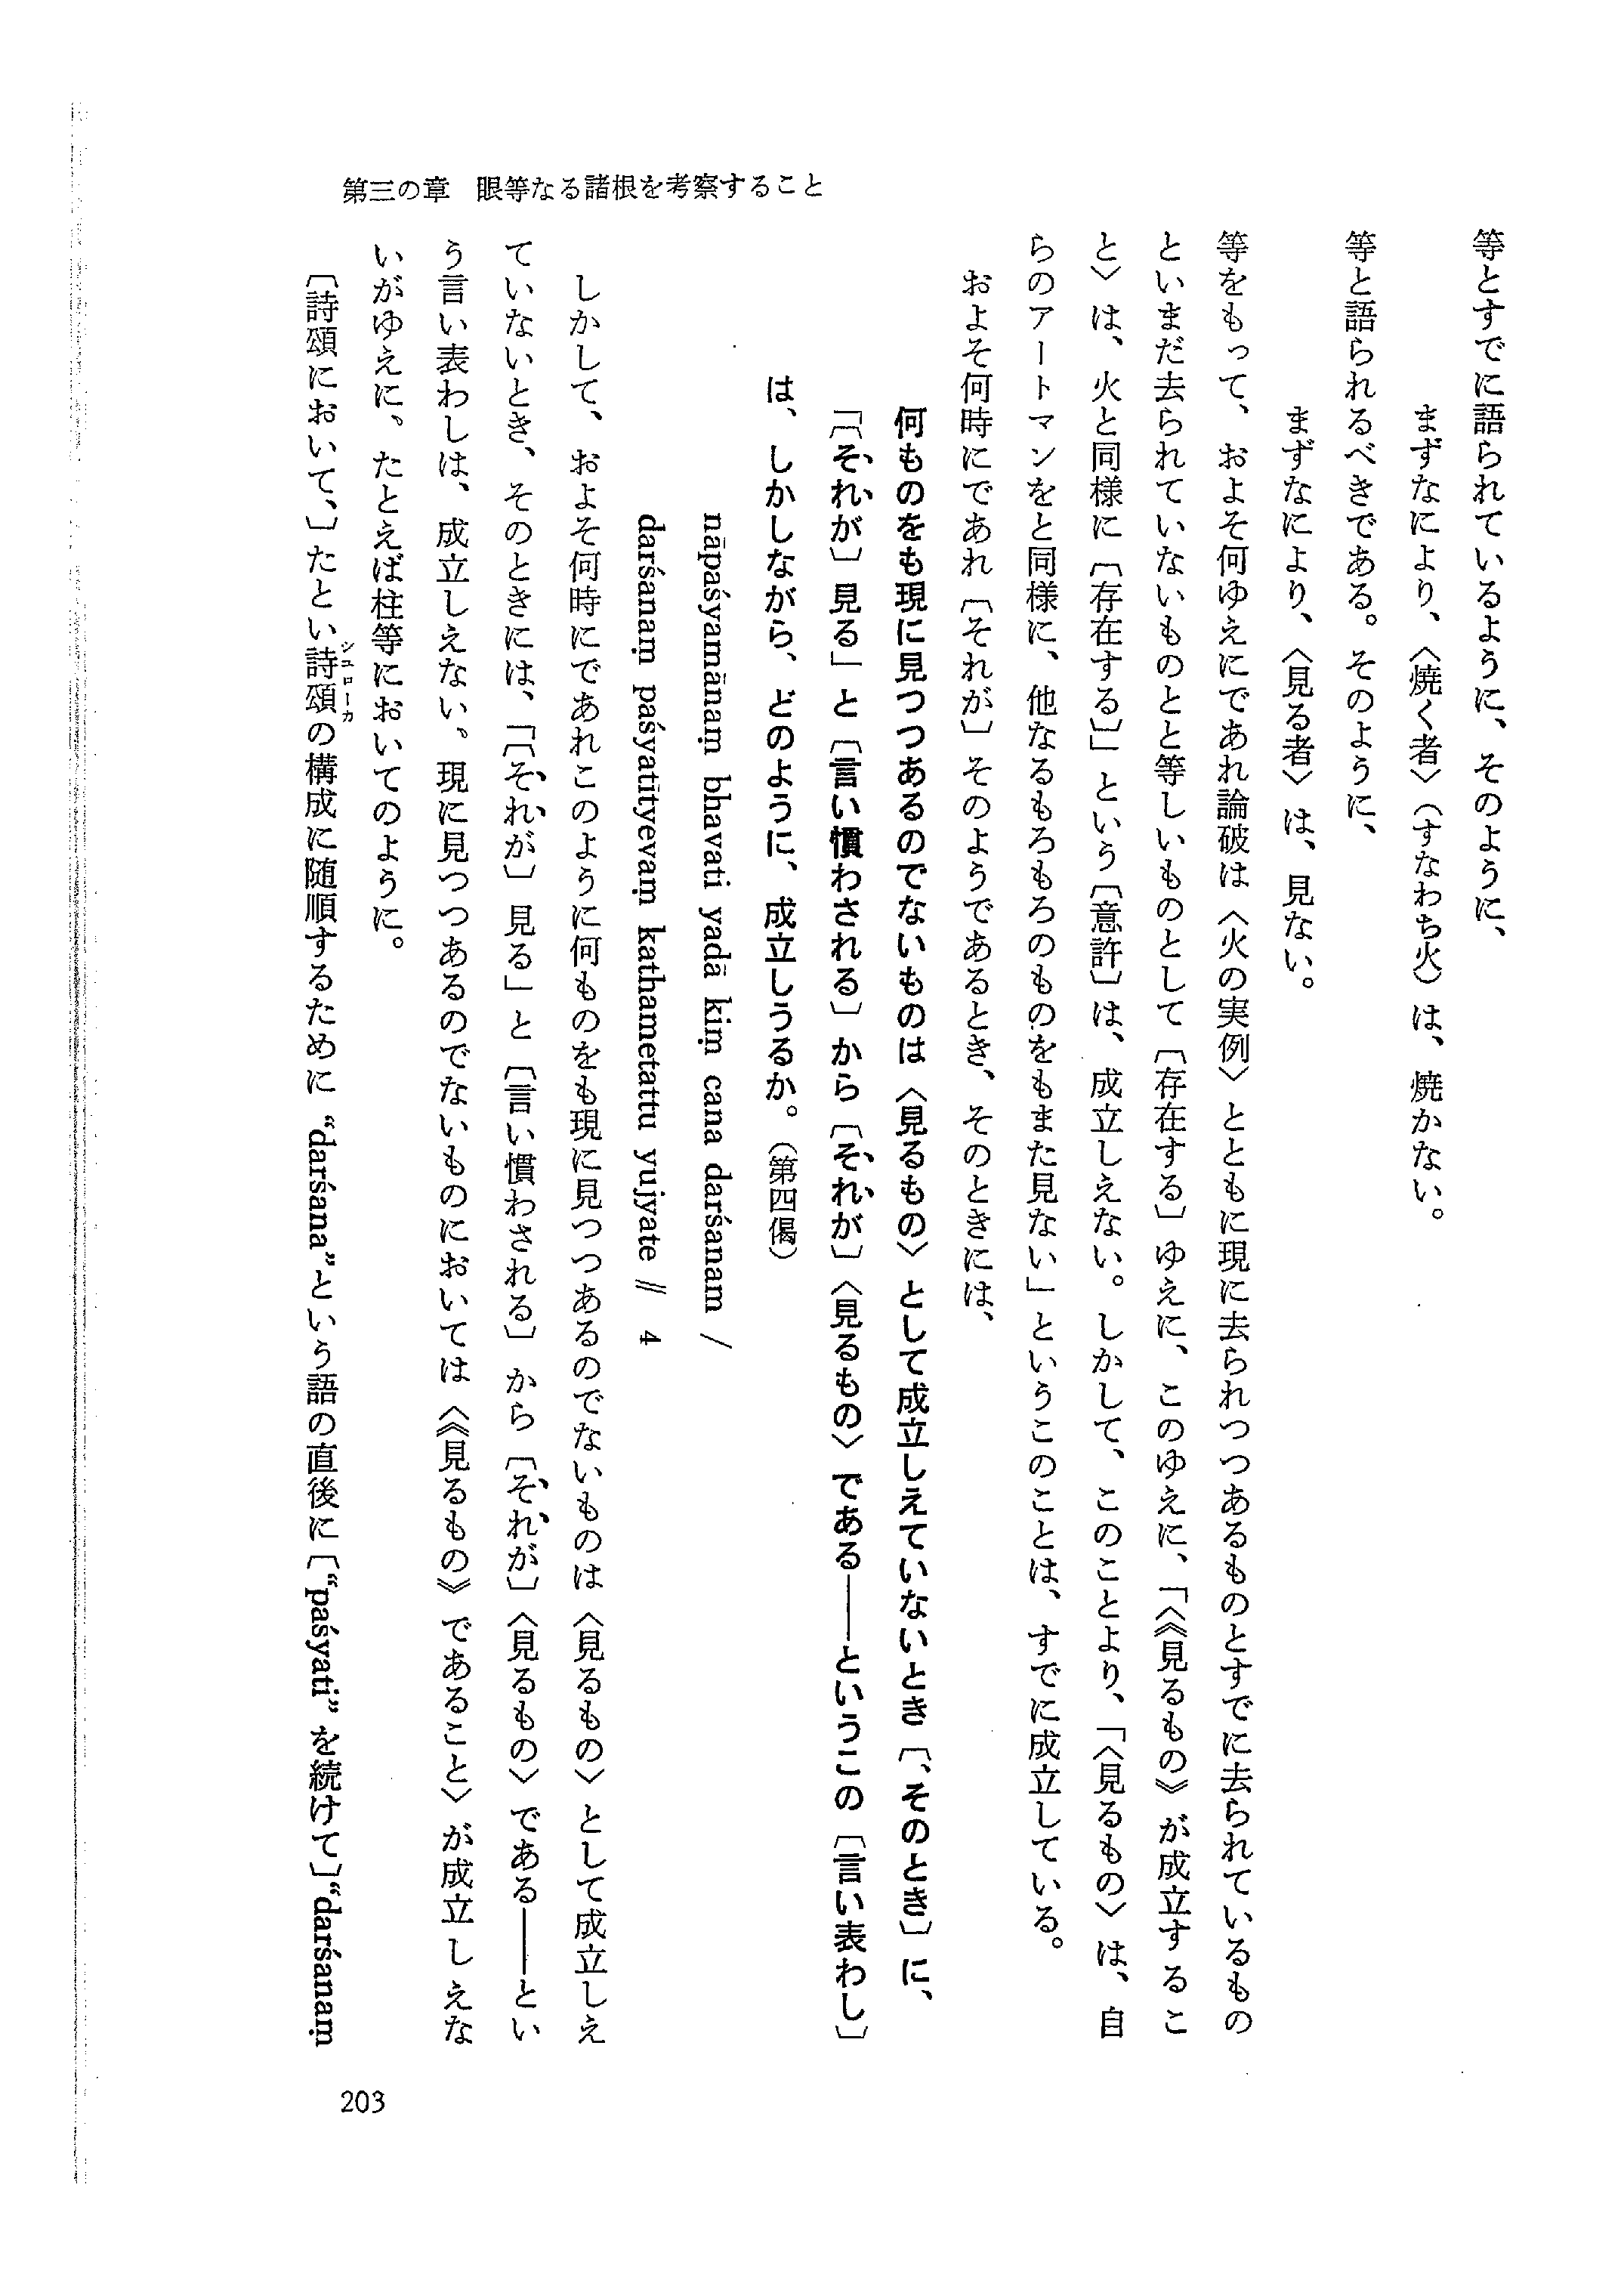 第三の章　眼等なる諸根を考察すること
等とすでに語られているように、そのように、
まずなにより、〈焼く者〉（すなわち火）は、焼かない。
等と語られるべきである。そのように、
まずなにより、〈見る者〉は、見ない。
等をもって、およそ何ゆえにであれ論破は〈火の実例〉とともに現に去られつつあるものとすでに去られているもの
といまだ去られていないものとと等しいものとして〔存在する〕ゆえに、このゆえに、「〈《見るもの》が成立するこ
と〉は、火と同様に〔存在する〕」という〔意許〕は、成立しえない。しかして、このことより、「〈見るもの〉は、自
らのアートマンをと同様に、他なるもろもろのものをもまた見ない」というこのことは、すでに成立している。
およそ何時にであれ〔それが〕そのようであるとき、そのときには、
何ものをも現に見つつあるのでないものは〈見るもの〉として成立しえていないとき〔、そのとき〕に、
「〔それが〕見る」と〔言い慣わされる〕から〔それが〕〈見るもの〉である——というこの〔言い表わし〕
は、しかしながら、どのように、成立しうるか。（第四偈）
nāpaśyamānaṃ bhavati yadā kiṃ cana darśanam /
darśanaṃ paśyatītyevaṃ kathametattu yujyate // 4
しかして、およそ何時にであれこのように何ものをも現に見つつあるのでないものは〈見るもの〉として成立しえ
ていないとき、そのときには、「〔それが〕見る」と〔言い慣わされる〕から〔それが〕〈見るもの〉である——とい
う言い表わしは、成立しえない。現に見つつあるのでないものにおいては〈《見るもの》であること〉が成立しえな
いがゆえに。たとえば柱等においてのように。
〔詩頌において、〕たとい詩頌シュローカの構成に随順するために “darśana” という語の直後に〔“paśyati” を続けて〕“darśanaṃ
203